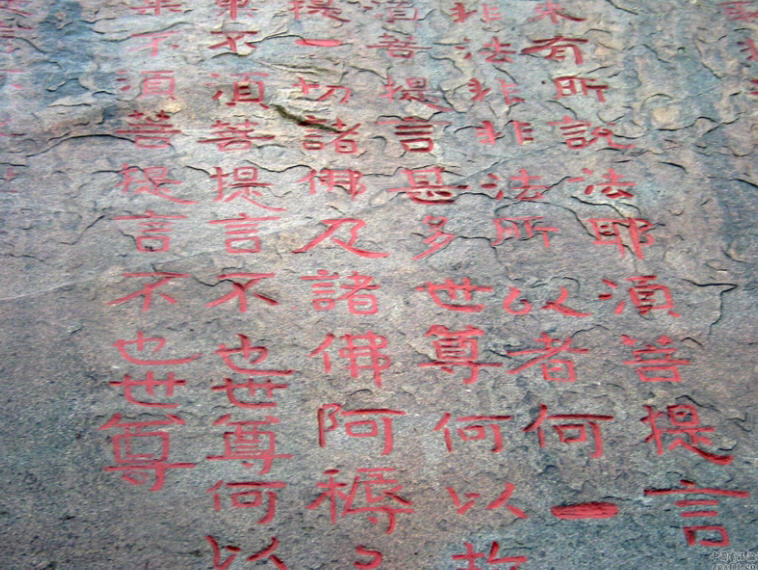 有所說法耶湏菩提言
非法非非法所以者何一
菩提言甚多世尊何以故
提一切諸佛及諸佛阿耨
不湏菩提言不也世尊何以
不湏菩提言不也世尊